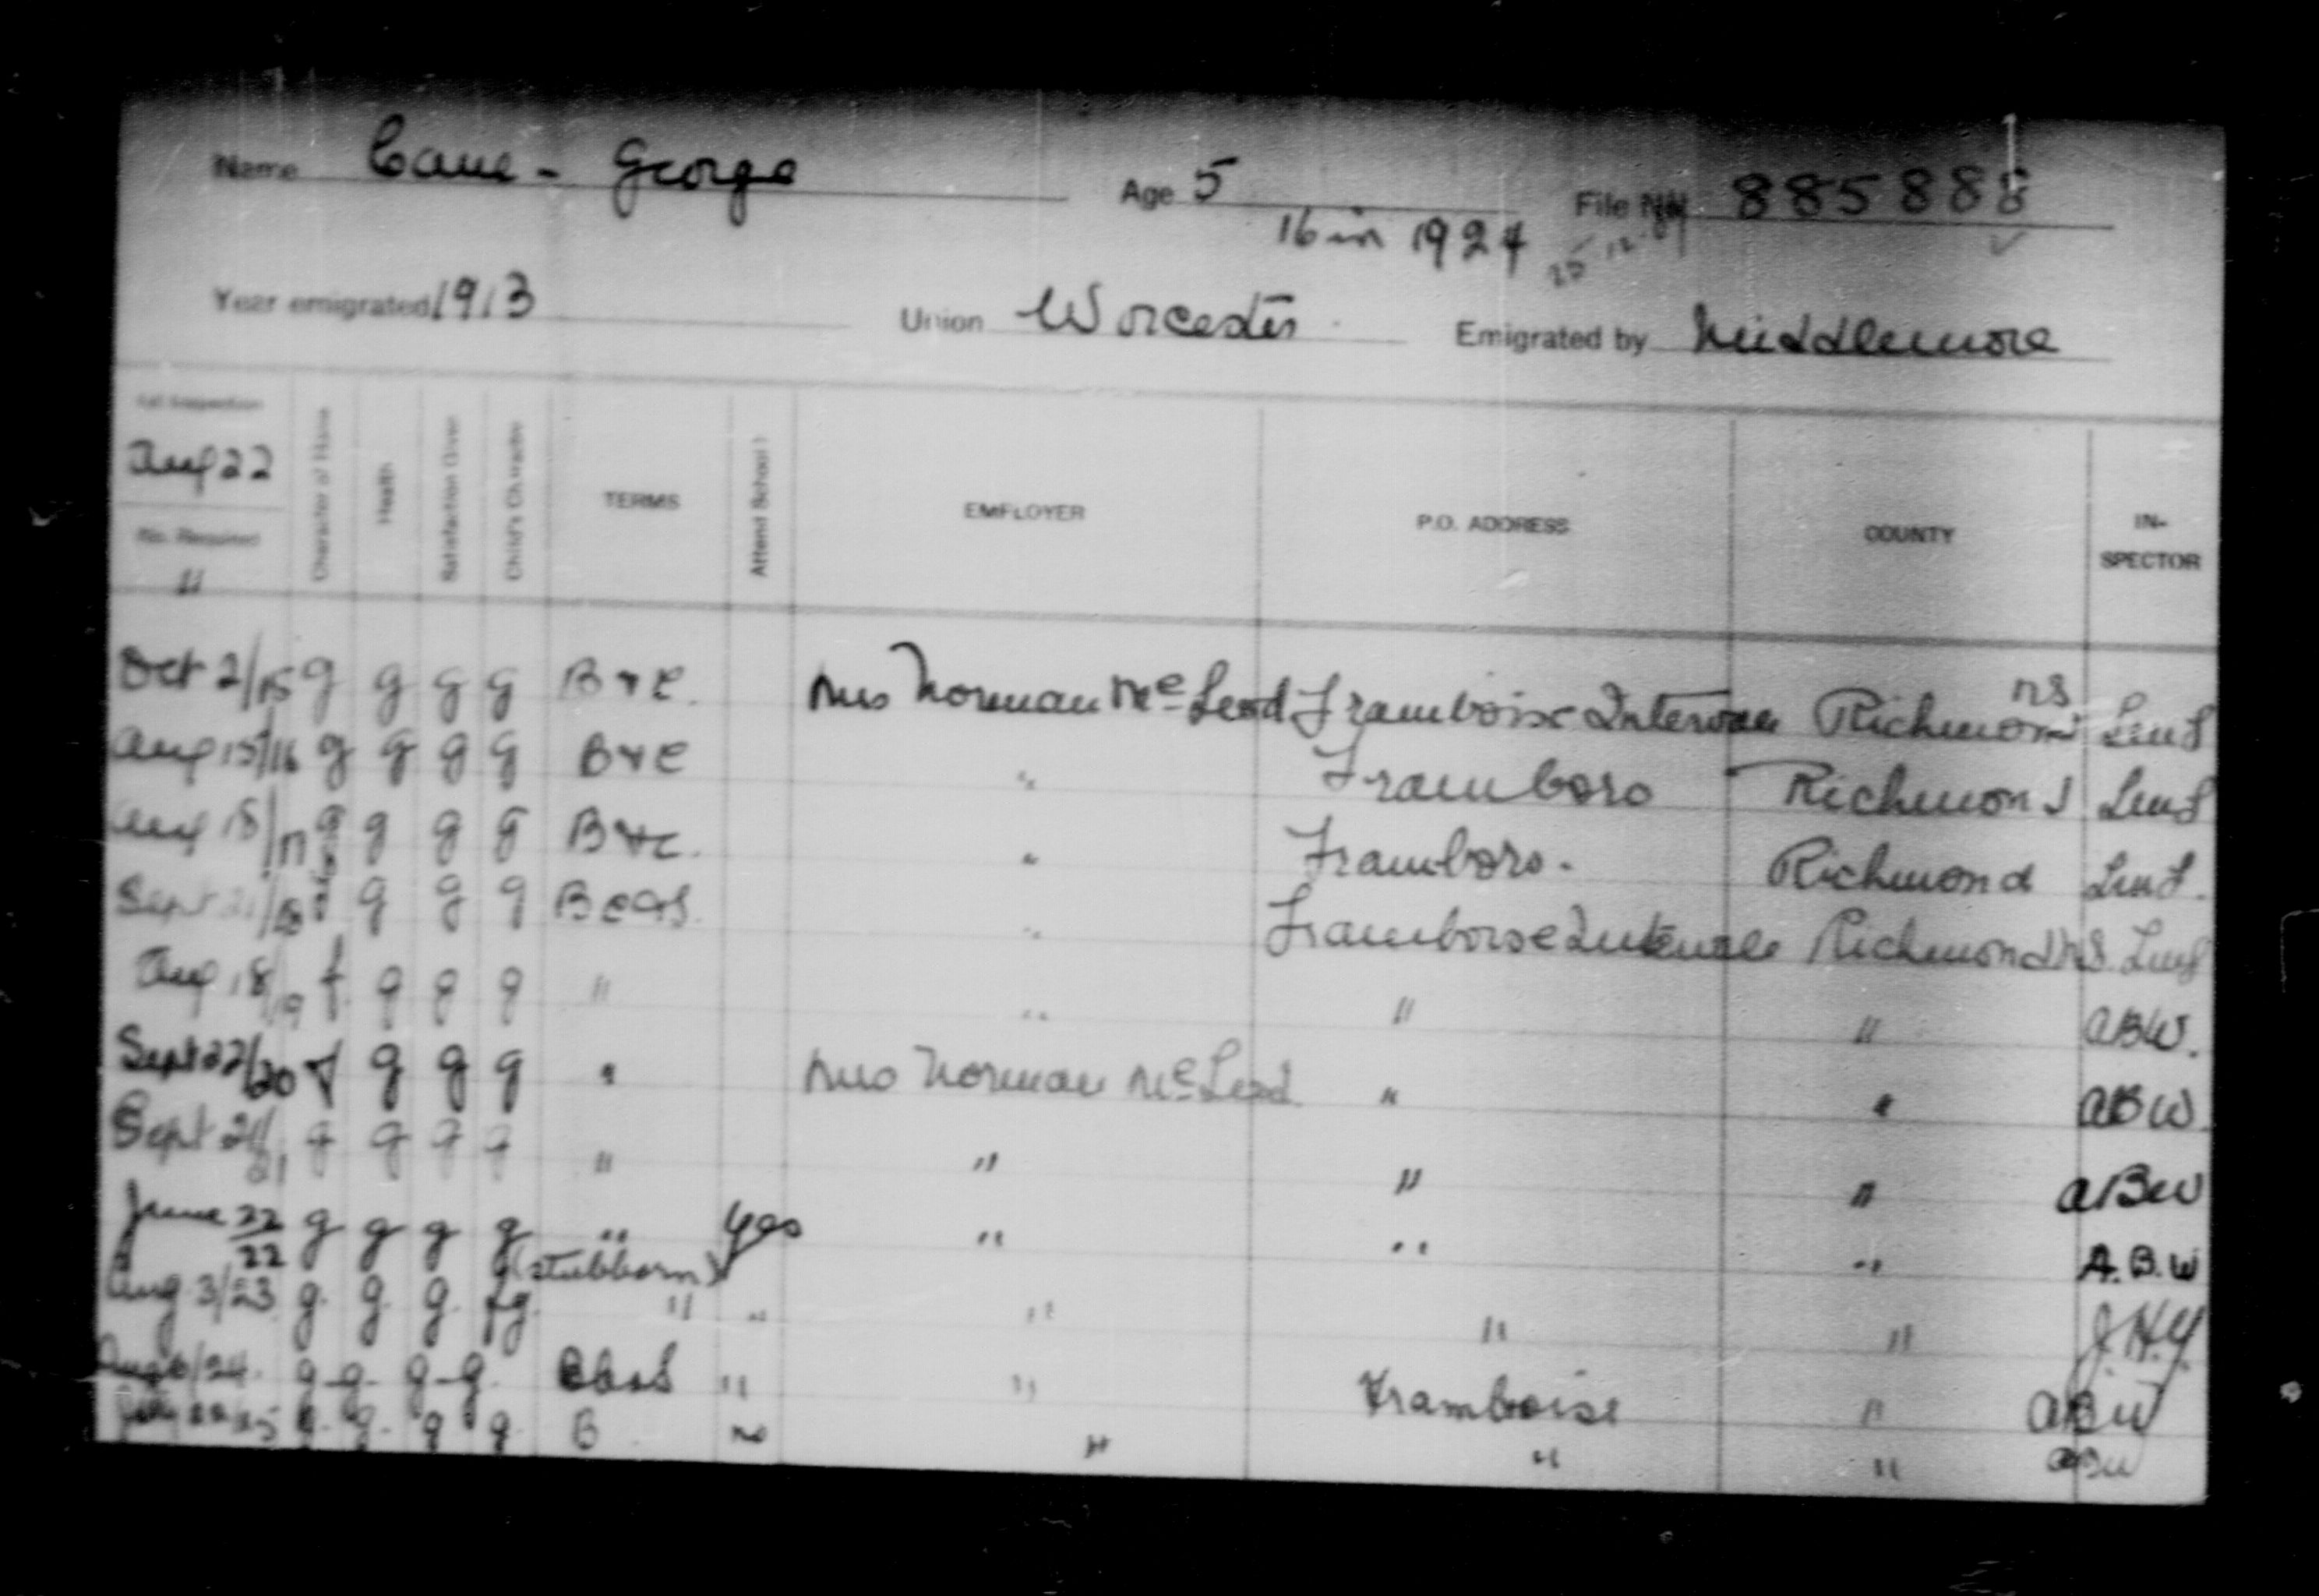 Name Cave - George Age 5 File No. 885888
16 in 1924
Year emigrated 1913 Union Worcester Emigrated by Middlemore
1st Inspection Aug 22 No. Required "
Character of Home Health Satisfaction Given Child's Character TERMS Attend School? EMPLOYER P.O. ADDRESS COUNTY IN-SPECTOR
Oct 2/15 g g g g B & C. Mrs Norman McLeod Framboise Intervale Richmond NS
Aug 15/16 g g g g B & C " Framboro Richmond
Aug 18/17 g g g g B & C. " Framboro. Richmond
Sept 21/18 g g g B C & S. " Framboise Intervale Richmond N.S.
Aug 18/19 f g g g " " " " ABW.
Sept 22/20 f g g g " Mrs Norman McLeod " " ABW
Sept 21/21 g g g g " " " " ABW
June 22/22 g g g g " yes " " " A.B.W
(stubborn)
Aug 3/23 g. g. g. fg. " " " " " J.H.Y.
Aug 6/24 g-g-g-g. " " Framboise " ABW
July /25 g. g. g g. B no " " " ABW